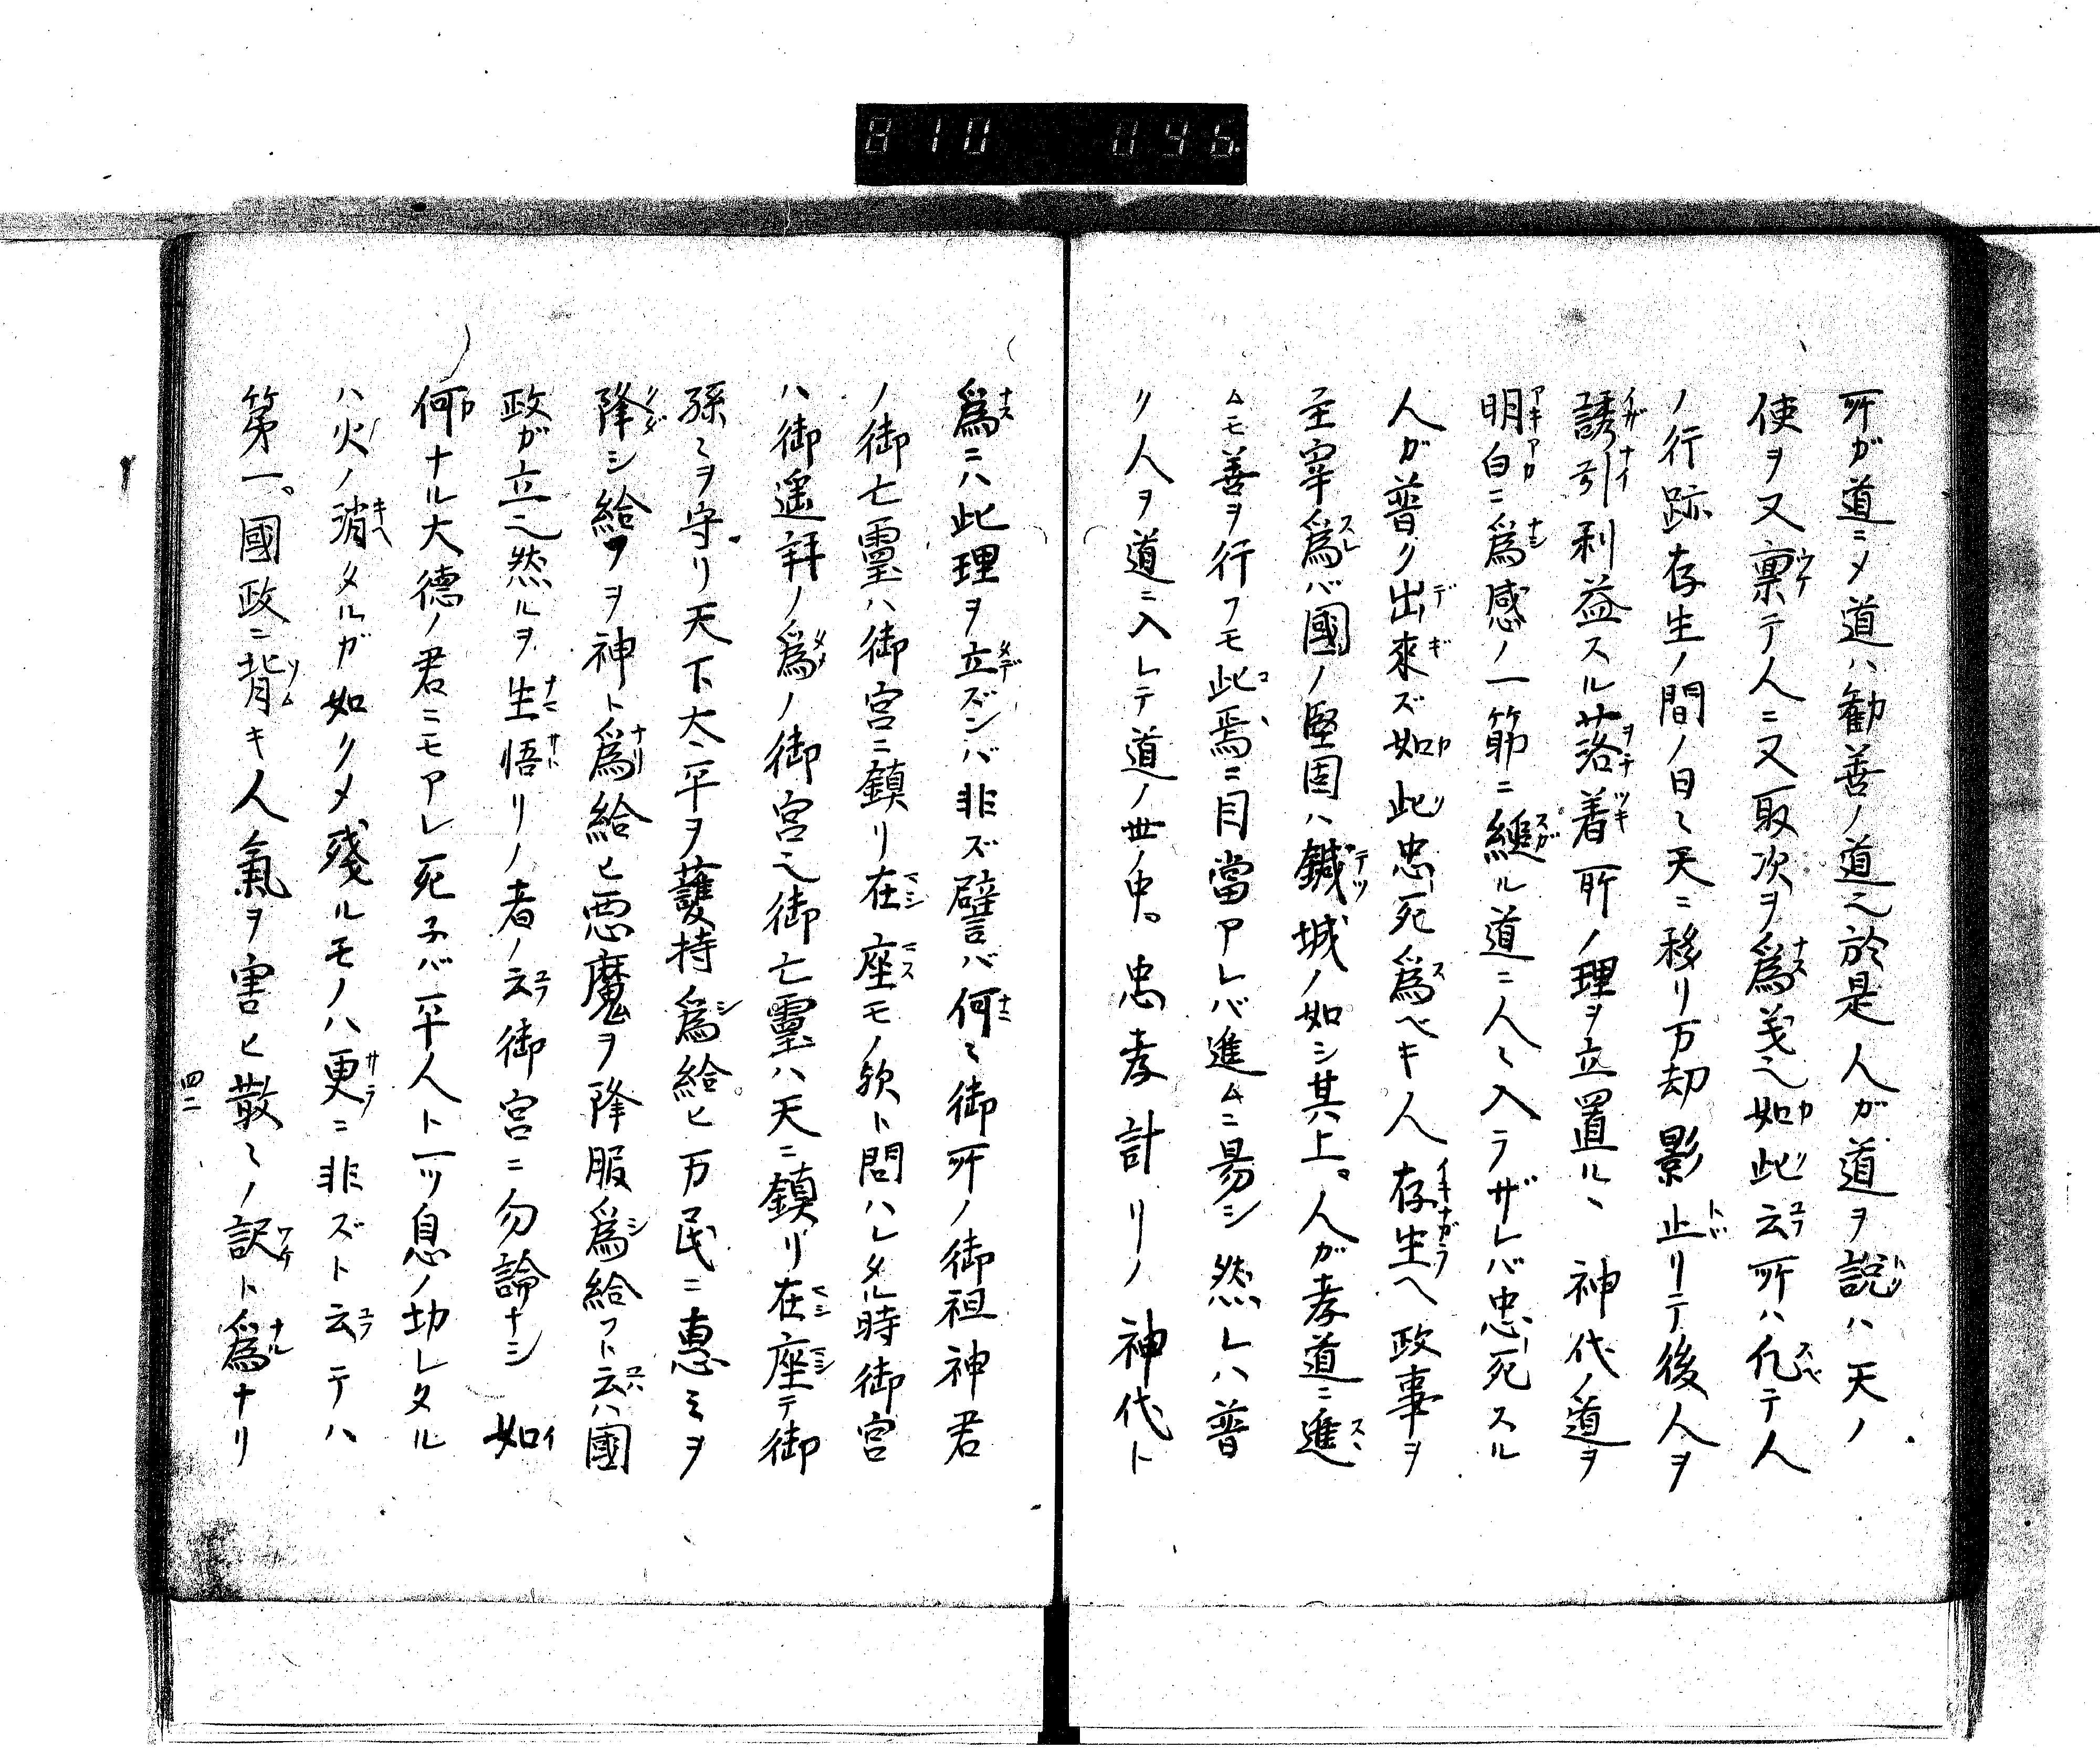 810 046
所ガ道ニメ道ハ勧善ノ道也於是人ガ道ヲ説ハ天ノ
使ヲ又稟テ人ニ又取次ヲ為義也如此云所ハ凢テ人
ノ行跡存生ノ間ノ日〻天ニ移リ万劫影止リテ後人ヲ
誘引利益スル落着所ノ理ヲ立置ル丶神代ノ道ヲ
明白ニ為感ノ一筋ニ縋ル道ニ人〻入ラザレバ忠死スル
人ガ普ク出來ズ如此忠死為ベキ人存生ヘ政事ヲ
主宰為バ國ノ堅固ハ鐵城ノ如シ其上。人ガ孝道ニ進
ムモ善ヲ行フモ此焉ニ目當アレバ進ムニ易シ然レハ普
ク人ヲ道ニ入レテ道ノ世ノ中。忠孝計リノ神代ト
為ニハ此理ヲ立ズンバ非ズ譬バ何〻御所ノ御祖神君
ノ御亡霊ハ御宮ニ鎮リ在座モノ欤ト問ハレタル時御宮
ハ御遙拝ノ為ノ御宮也御亡靈ハ天ニ鎮リ在座テ御
孫〻ヲ守リ天下太平ヲ護持為給ヒ万民ニ恵ミヲ
降シ給フヲ神ト為給ヒ悪魔ヲ降服為給フト云ハ國
政ガ立也然ルヲ生悟リノ者ノ云御宮ニ勿論ナシ如
何ナル大德ノ君ニモアレ死子バ平人ト一ツ息ノ切レタル
ハ火ノ消タルガ如クメ殘ルモノハ更ニ非ズト云テハ
第一。國政ニ背キ人氣ヲ害ヒ散〻ノ訳ト為ナリ
四二